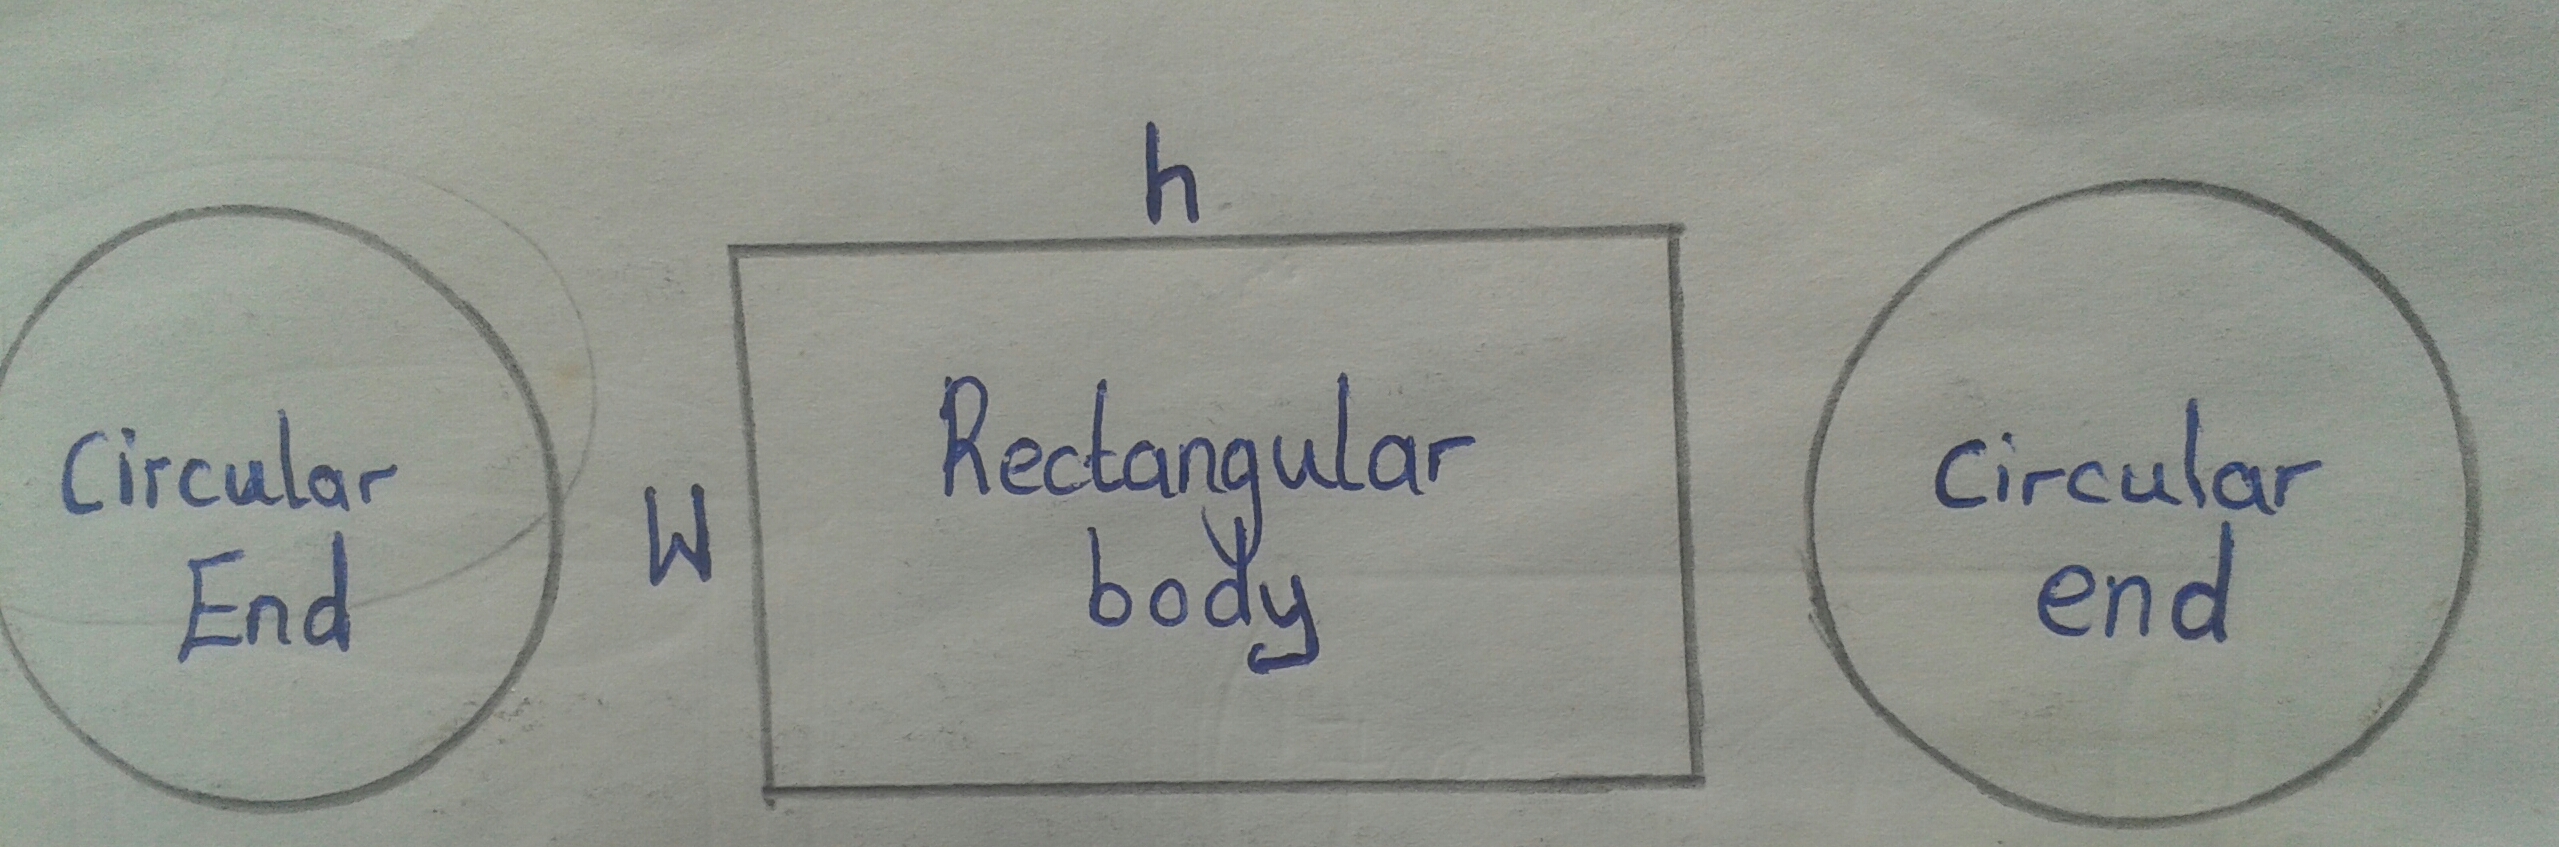 h
Circular
End
W
Rectangular
body
circular
end